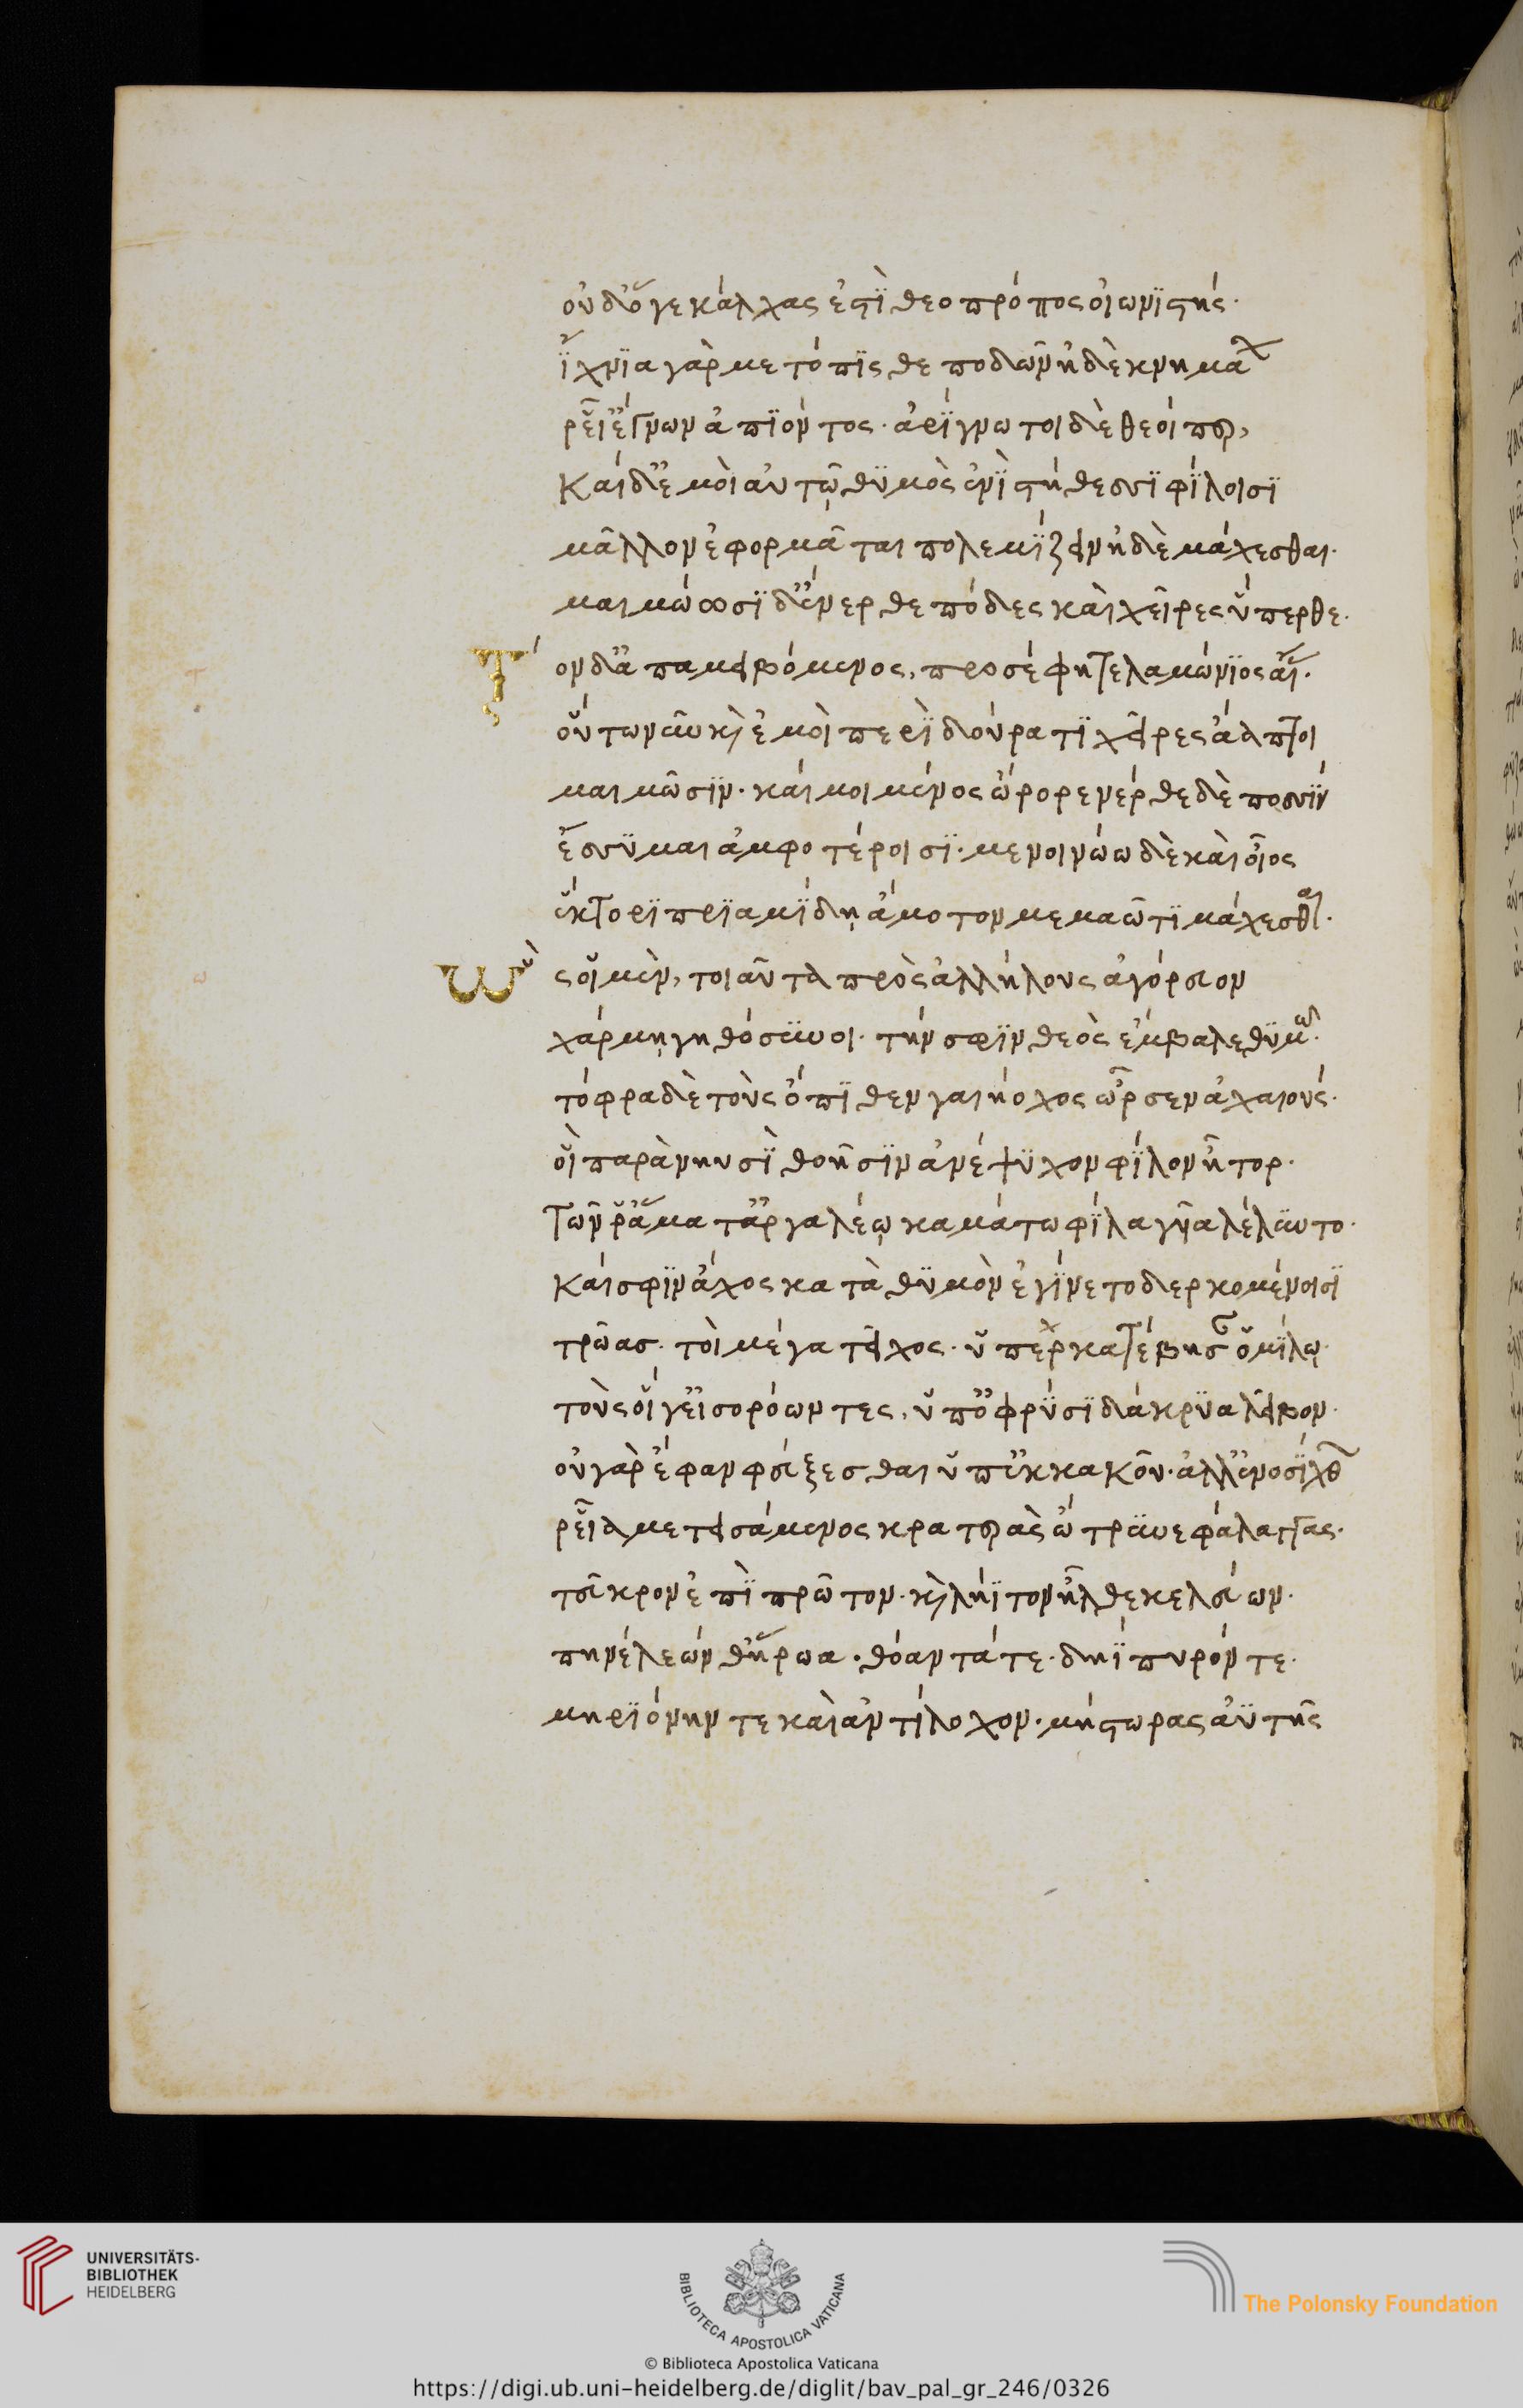 οὐδ' ὅγε κάλχας ἐστὶ θεοπρόπος οἰωνϊστής·
ἴχνϊα γὰρ μετόπϊσθε ποδῶν ἠδὲ κνημά
ῥεῖ' ἔγνων ἀπϊόντος· ἀρίγνωτοι δὲ θεοί περ,
Καὶ δ' ἐμοὶ αὐτῶ θϋμὸς ἐνὶ στήθεσσι φίλοισϊ
μᾶλλον ἐφορμᾶται πολεμΐζειν ἠδὲ μάχεσθαι·
μαιμώωσϊ δ' ἔνερθε πόδες καὶ χεῖρες ὕπερθε·
Τὸν δ' ἀπαμειβόμενος, προσέφη τελαμώνϊος αἴ·
οὕτω νῦν κὶ ἐμοὶ περὶ δούρατϊ χεῖρες ἄαπτοι
μαιμῶσϊν· καί μοι μένος ὤρορε νέρθε δὲ ποσσὶν
ἔσσϋμαι ἀμφοτέροισϊ· μενοινώω δὲ καὶ οἶος
ἕκτορϊ πρϊαμΐδῃ ἄμοτον μεμαῶτϊ μάχεσθαι·
Ὣς οἱ μὲν, τοιαῦτα πρὸς ἀλλήλους ἀγόρευον
χάρμῃ γηθόσϋνοι· τήν σφϊν θεὸς ἔμβαλε θϋμῶ·
τόφρα δὲ τοὺς ὄπϊθεν γαιήοχος ὦρσεν ἀχαιούς·
οἳ παρὰ νηυσὶ θοῆσϊν ἀνέψϋχον φΐλον ἦτορ·
Τῶν ῥ' ἅμα τ' ἀργαλέῳ καμάτω φίλα γῆα λέλϋντο·
Καὶ σφϊν ἄχος κατὰ θϋμὸν ἐγΐνετο δερκομένοισϊ
τρῶασ· τοὶ μέγα τεῖχος· ὑπερκατέβησ ὁμΐλῳ·
τοὺς οἵ γ' εἰσορόωντες, ὑπ' ὀφρΰσϊ δάκρϋα λεῖβον·
οὐ γὰρ ἔφαν φεύξεσθαι ὑπ' ἐκ κακοῦ· ἀλλ' ἐνοσΐχθ
ῥεῖα μετεισάμενος κρατερὰς ὤτρϋνε φάλαγγας·
τεῦκρον ἐπὶ πρῶτον· κὶ λήϊτον ἦλθε κελεύων·
πηνέλεών θ' ἥρωα· θόαντά τε· δηΐπυρόν τε·
μηρϊόνην τε καὶ ἀντίλοχον· μήστωρας ἀϋτῆς
UNIVERSITÄTS-
BIBLIOTHEK
HEIDELBERG
BIBLIOTECA APOSTOLICA VATICANA
The Polonsky Foundation
© Biblioteca Apostolica Vaticana
https://digi.ub.uni-heidelberg.de/diglit/bav_pal_gr_246/0326